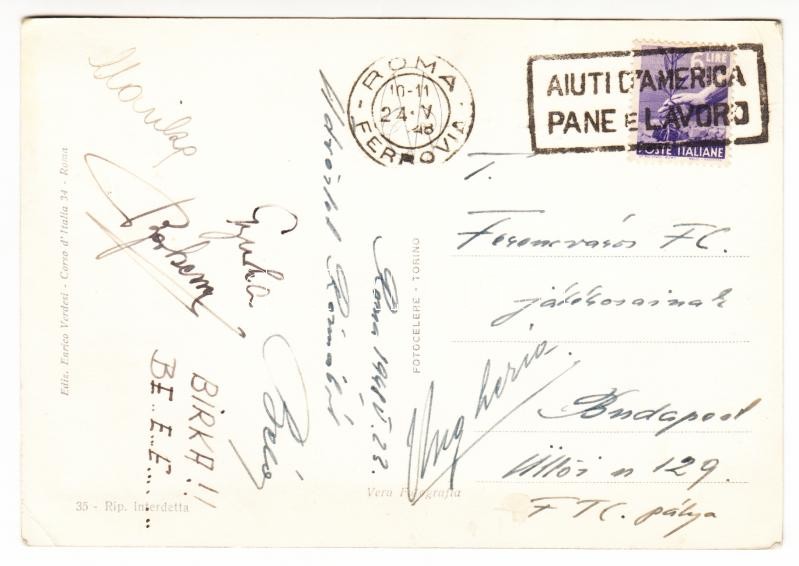 ROMA
FERROVIA
10-11
24·V
48
6 LIRE
AIUTI D'AMERICA
PANE E LAVORO
POSTE ITALIANE
T.
Ferencváros FC.
játékosainak
Budapest
Üllői u 129.
FTC. pálya
Ungheria.
Roma 1948 V. 23.
Rómából
Gyula
BIRKA!!
BE..E..E.......
Ediz. Enrico Verdesi - Corso d'Italia 34 - Roma
FOTOCELERE - TORINO
35 - Rip. interdetta
Vera Fotografia